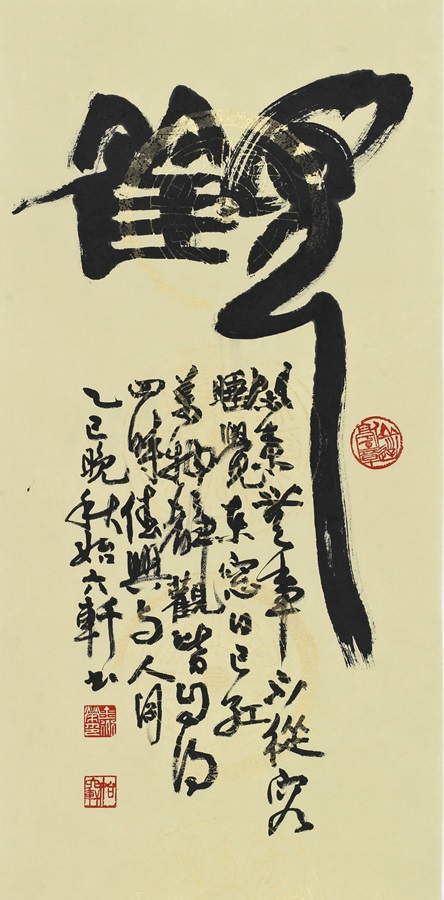 閑來無事不從容
睡覺東窓日已紅
萬物靜觀皆自得
四時佳興与人同
乙巳晚秋 六軒书